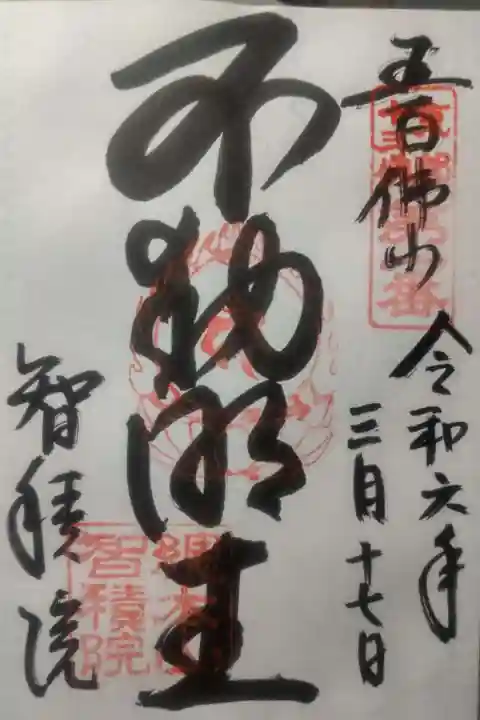 五百佛山
令和六年
三月十七日
不動明王
智積院
總本山
智積院